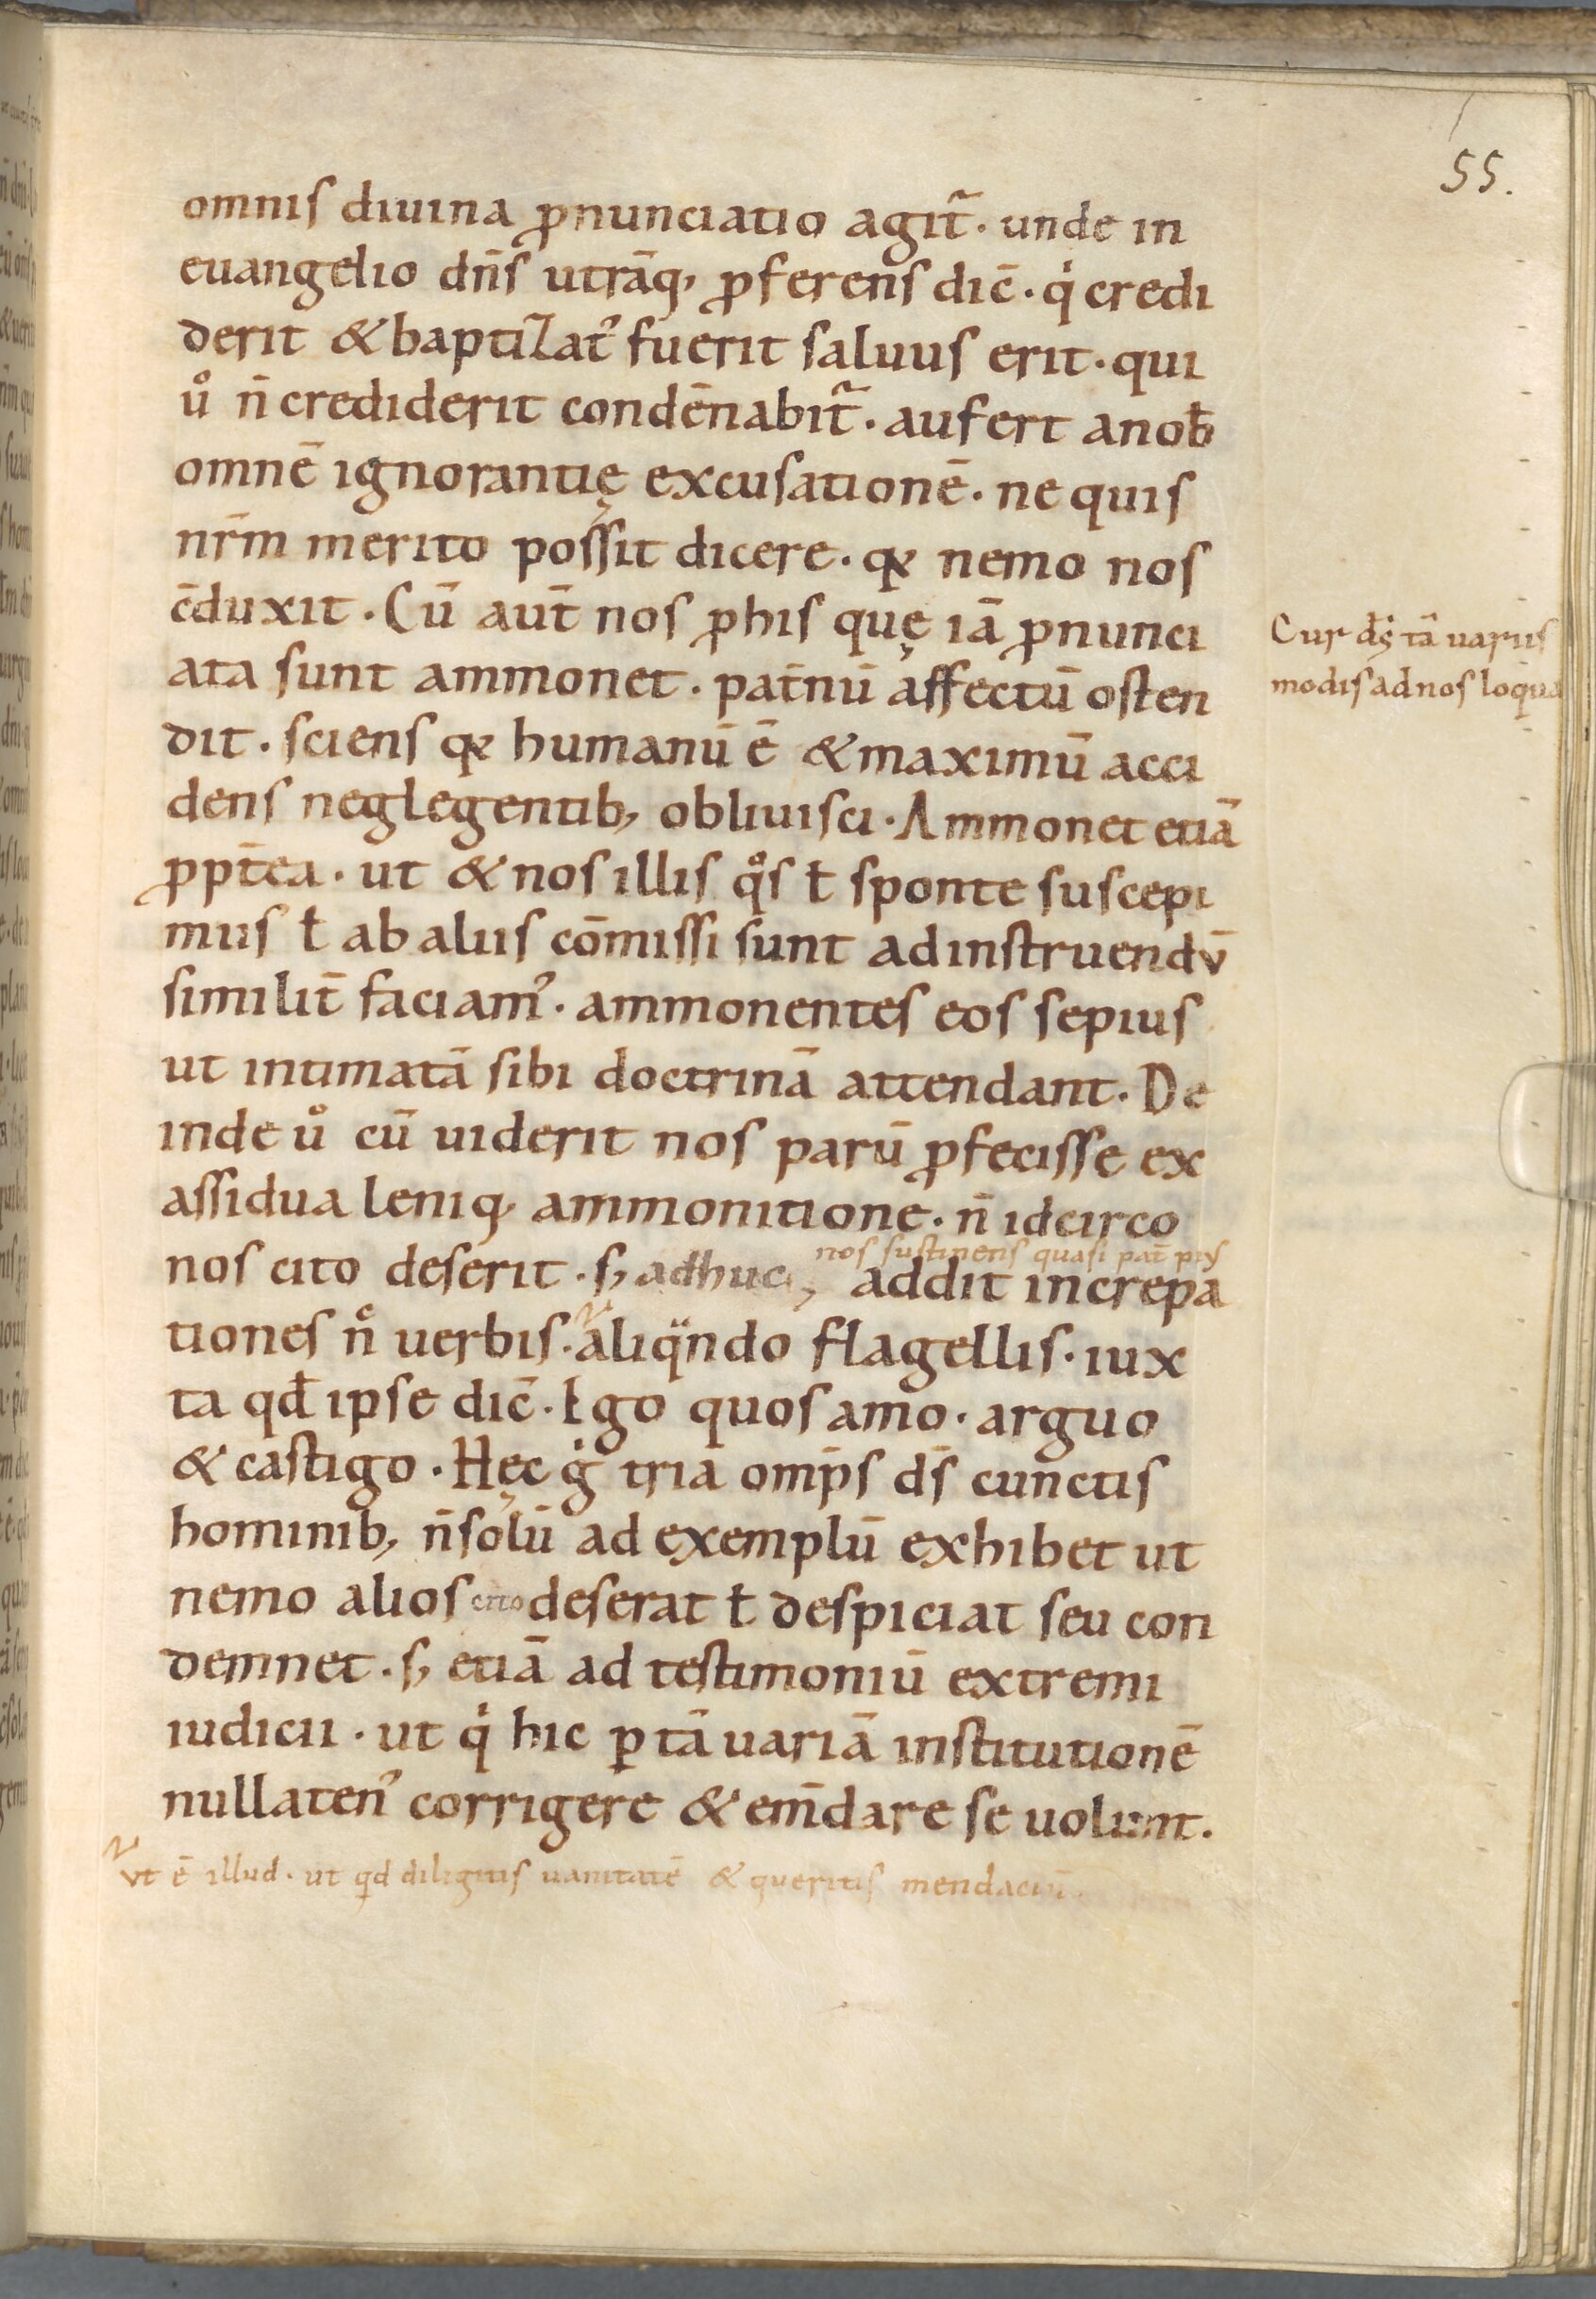 55.
omnis diuina ꝓnunciatio agit᷑. unde in
euangelio dn̄s utrāq; ꝓferens dic̄. qͥ credi
derit & baptizatꝰ fuerit saluus erit. qui
uͦ n̄ crediderit condēnabit᷑. aufert a nob̄
omnē ignorantię excusationē. ne quis
nr̄m merito possit dicere. qꝛ nemo nos
c̄duxit. Cū aut̄ nos ꝓ his quę iā ꝓnunci
ata sunt ammonet. pat̄nū affectū osten
dit. sciens qꝛ humanū ē & maximū acci
dens neglegentib; obliuisci. Ammonet etiā
ꝓpt̄ea. ut & nos illis qͦs ł sponte suscepi
mus ł ab aliis cōmissi sunt ad instruendū
similit̄ faciamꝰ. ammonentes eos sepius
ut intimatā sibi doctrinā attendant. De
inde uͦ cū uiderit nos parū ꝓfecisse ex
assidua leniq; ammonitione. n̄ idcirco
nos sustinens quasi pat̄ piꝰ
nos cito deserit. s; adhuc, addit increpa
tiones nͨ uerbis. aliqͣndo flagellis. iux
ta qđ ipse dic̄. Ego quos amo. arguo
& castigo. Hęc gͥ tria omp̄s ds̄ cunctis
hominib; n̄ solū ad exemplū exhibet ut
nemo alios cito deserat ł despiciat seu con
demnet. s; etiā ad testimoniū extremi
iudicii. ut qͥ hic ꝑ tā uariā institutionē
nullatenꝰ corrigere & em̄dare se uolunt.
Vt ē illud. ut qͥd diligitis uanitatē & queritis mendaciū.
Cur ds̄ tā uariis
modis ad nos loqͣ